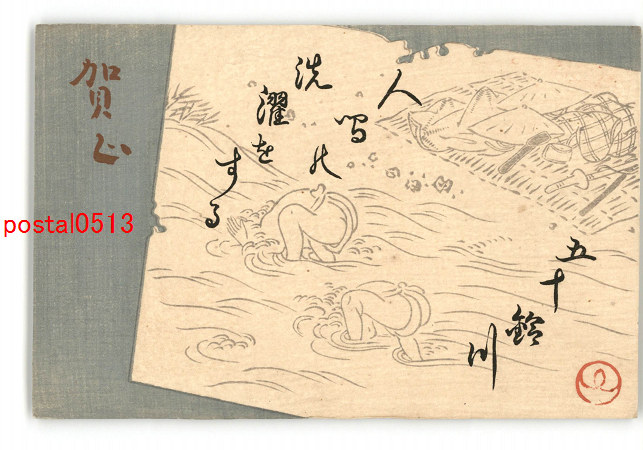 賀正
人間の
洗濯をする
五十鈴川
postal0513